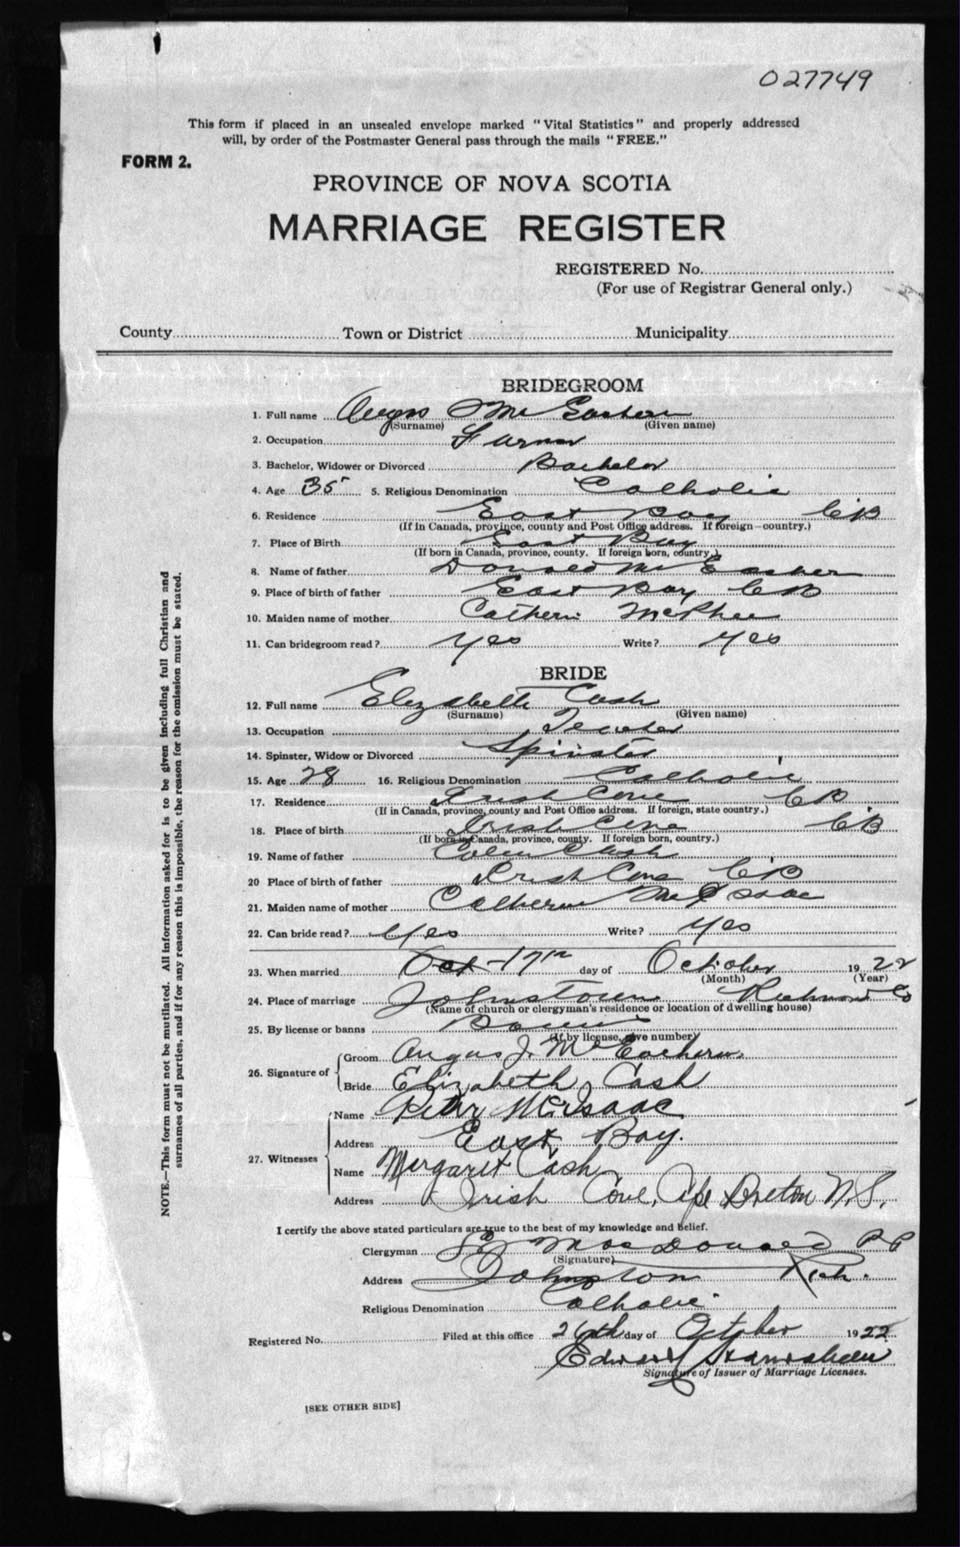 027749
This form if placed in an unsealed envelope marked "Vital Statistics" and properly addressed
will, by order of the Postmaster General pass through the mails "FREE."
FORM 2.
PROVINCE OF NOVA SCOTIA
MARRIAGE REGISTER
REGISTERED No.
(For use of Registrar General only.)
County Town or District Municipality
BRIDEGROOM
1. Full name Angus McEachern
(Surname) (Given name)
2. Occupation Farmer
3. Bachelor, Widower or Divorced Bachelor
4. Age 35 5. Religious Denomination Catholic
6. Residence East Bay CB
(If in Canada, province, county and Post Office address. If foreign-country.)
7. Place of Birth East Bay
(If born in Canada, province, county. If foreign born, country.)
8. Name of father Donald McEacher
9. Place of birth of father East Bay CB
10. Maiden name of mother Catherin McPhee
11. Can bridegroom read? Yes Write? Yes
BRIDE
12. Full name Elizabeth Cash
(Surname) (Given name)
13. Occupation
14. Spinster, Widow or Divorced Spinster
15. Age 28 16. Religious Denomination Catholic
17. Residence Irish Cove CB
(If in Canada, province, county and Post Office address. If foreign, state country.)
18. Place of birth Irish Cove CB
(If born in Canada, province, county. If foreign born, country.)
19. Name of father Cash
20 Place of birth of father Irish Cove CB
21. Maiden name of mother Catherine McIsaac
22. Can bride read? Yes Write? Yes
23. When married Oct 17th day of October 1922
(Month) (Year)
24. Place of marriage Johnstown Richmond Co
(Name of church or clergyman's residence or location of dwelling house)
25. By license or banns Banns
(If by license, give number)
26. Signature of
Groom Angus J. McEachern
Bride Elizabeth Cash
27. Witnesses
Name Peter McIsaac
Address East Bay.
Name Margaret Cash
Address Irish Cove, Cape Breton N.S.
I certify the above stated particulars are true to the best of my knowledge and belief.
Clergyman MacDonald PP
(Signature)
Address Johnston Rich.
Religious Denomination Catholic.
Registered No. Filed at this office 26th day of October 1922
Edward
Signature of Issuer of Marriage Licenses.
[SEE OTHER SIDE]
NOTE.—This form must not be mutilated. All information asked for is to be given including full Christian and
surnames of all parties, and if for any reason this is impossible, the reason for the omission must be stated.